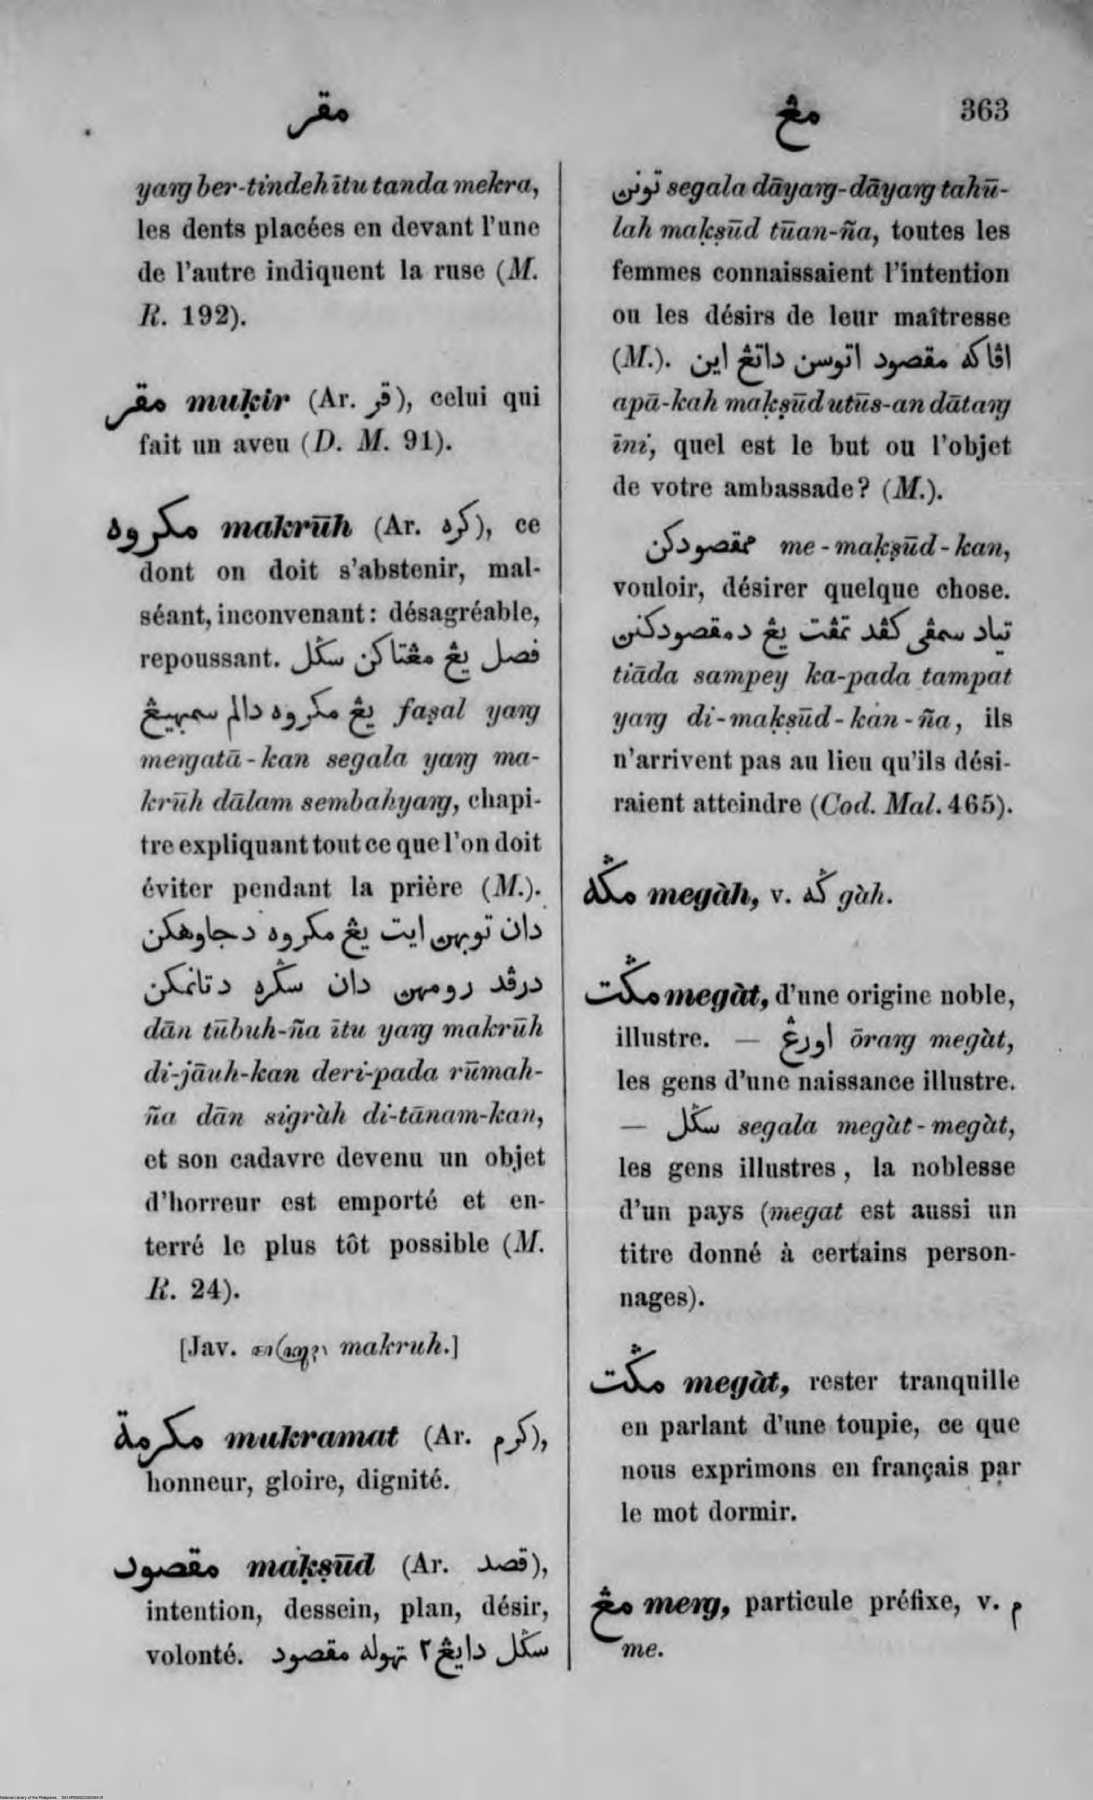 مقر
مڠ
363
yaŋ ber-tindeh ītu tanda mekra,
les dents placées en devant l'une
de l'autre indiquent la ruse (M.
R. 192).
مقر muḳir (Ar. قر), celui qui
fait un aveu (D. M. 91).
مكروه makrūh (Ar. كره), ce
dont on doit s'abstenir, mal-
séant, inconvenant: désagréable,
repoussant. فصل يڠ مڠتاكن سݢل
يڠ مكروه دالم سمبهيڠ faṣal yaŋ
meŋatā-kan segala yaŋ ma-
krūh dālam sembahyaŋ, chapi-
tre expliquant tout ce que l'on doit
éviter pendant la prière (M.).
دان توبهن ايت يڠ مكروه دجاوهكن
درڤد رومهن دان سݢره دتانمكن
dān tūbuh-ña ītu yaŋ makrūh
di-jāuh-kan deri-pada rūmah-
ña dān sigràh di-tānam-kan,
et son cadavre devenu un objet
d'horreur est emporté et en-
terré le plus tôt possible (M.
R. 24).
[Jav. makruh.]
مكرمة mukramat (Ar. كرم),
honneur, gloire, dignité.
مقصود maḳṣūd (Ar. قصد),
intention, dessein, plan, désir,
volonté. سݢل دايڠ٢ تهوله مقصود
تونن segala dāyaŋ-dāyaŋ tahū-
lah maḳṣūd tūan-ña, toutes les
femmes connaissaient l'intention
ou les désirs de leur maîtresse
(M.). اڤاكه مقصود اتوسن داتڠ اين
apā-kah maḳṣūd utūs-an dātaŋ
īni, quel est le but ou l'objet
de votre ambassade? (M.).
ممقصودكن me-maḳṣūd-kan,
vouloir, désirer quelque chose.
تياد سمڤى كڤد تمڤت يڠ دمقصودكنن
tiāda sampey ka-pada tampat
yaŋ di-maḳṣūd-kan-ña, ils
n'arrivent pas au lieu qu'ils dési-
raient atteindre (Cod. Mal. 465).
مݢه megàh, v. ݢه gàh.
مݢت megàt, d'une origine noble,
illustre. — اورڠ ōraŋ megàt,
les gens d'une naissance illustre.
— سݢل segala megàt-megàt,
les gens illustres, la noblesse
d'un pays (megat est aussi un
titre donné à certains person-
nages).
مݢت megàt, rester tranquille
en parlant d'une toupie, ce que
nous exprimons en français par
le mot dormir.
مڠ meŋ, particule préfixe, v. م
me.